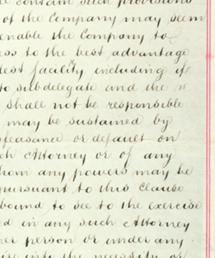 contain such provisions
of the Company may seem
enable the Company to
ess to the best advantage
dest facility including if
to subdelegate and the
shall not be responsible
may be sustained by
feasance or default on
ch Attorney or of any
hom any powers may be
pursuant to this Clause
bound to see to the exercise
ed in any such Attorney
her person or under any
ire into the necessity or